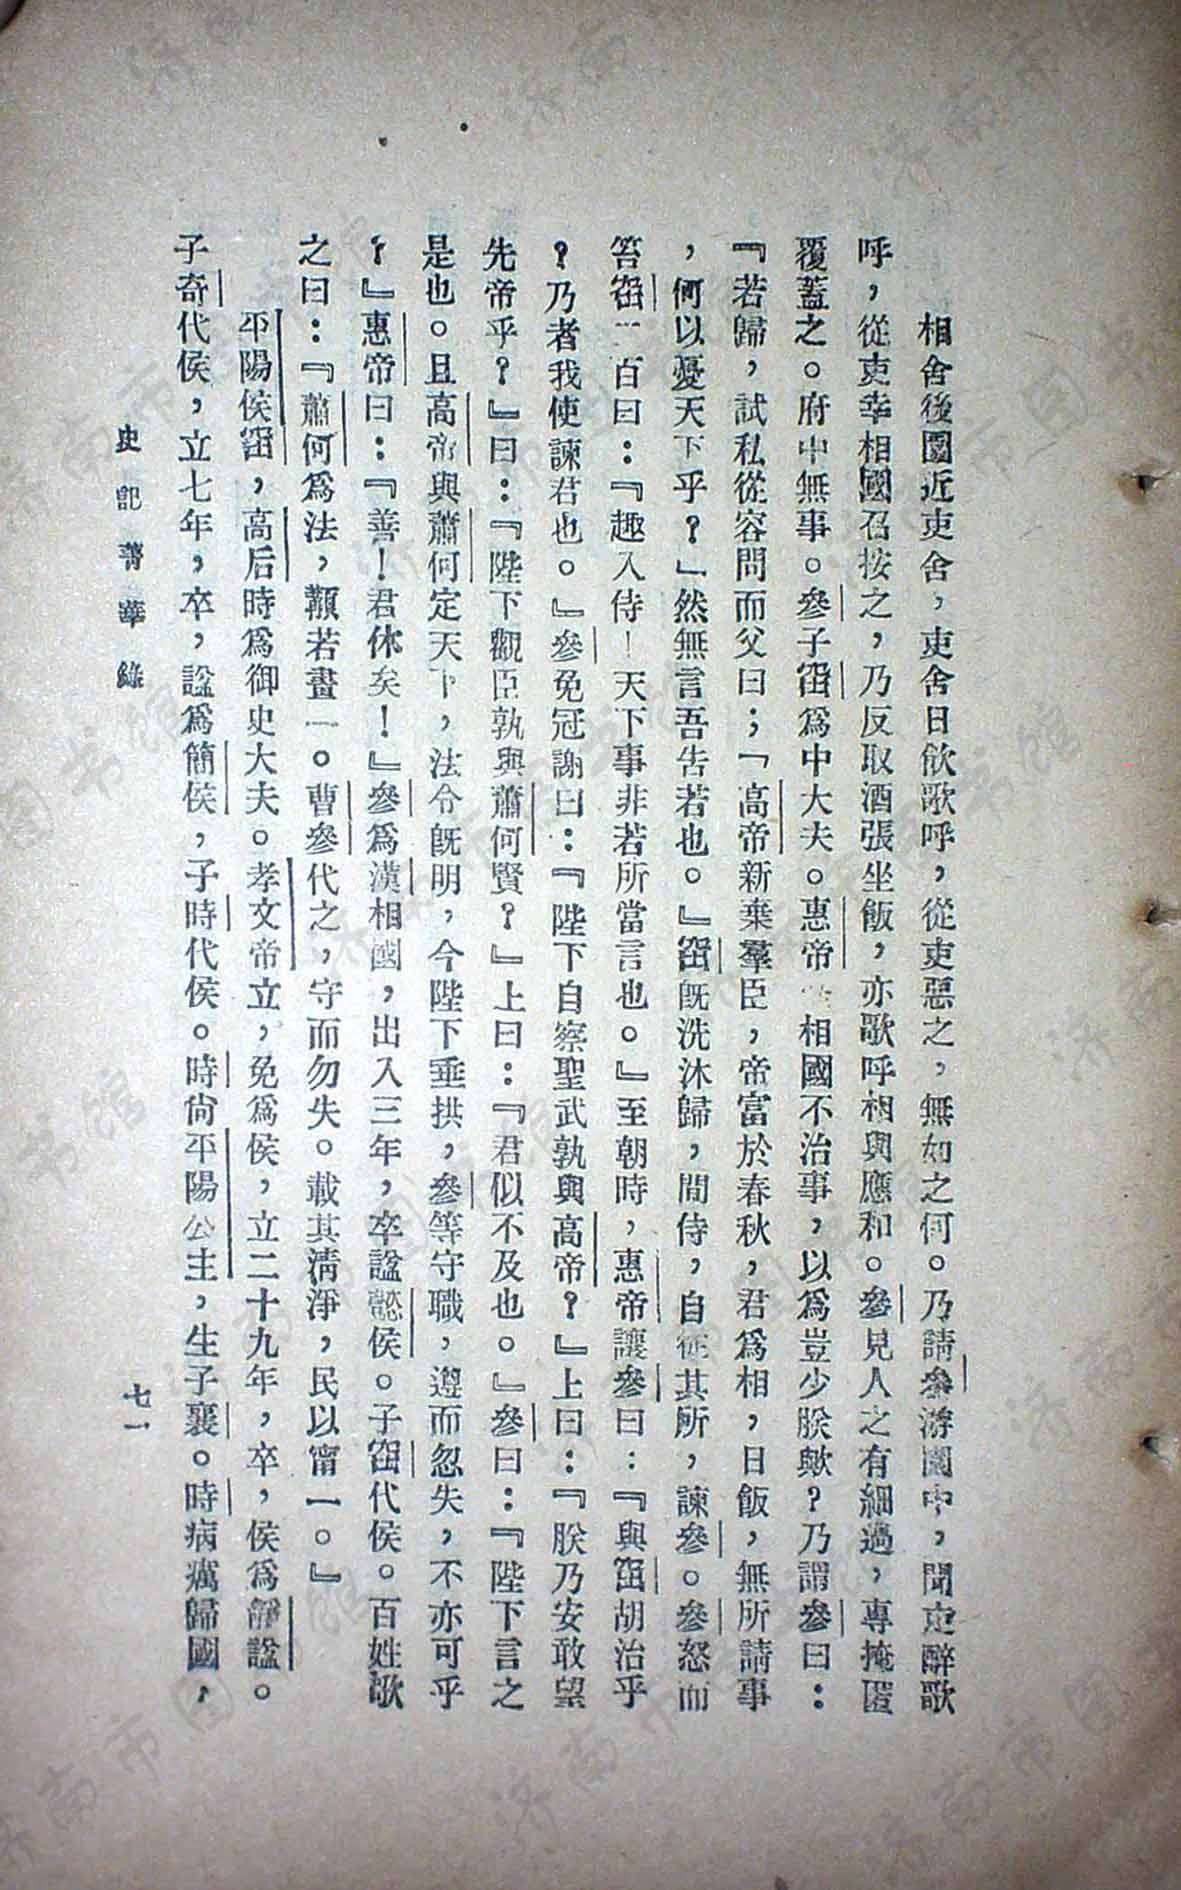 相舍後園近吏舍，吏舍日飲歌呼，從吏惡之，無如之何。乃請參游園中，聞吏醉歌
呼，從吏幸相國召按之，乃反取酒張坐飯，亦歌呼相與應和。參見人之有細過，專掩匿
覆蓋之。府中無事。參子窋爲中大夫。惠帝怪相國不治事，以爲豈少朕歟？乃謂參曰：
『若歸，試私從容問而父曰；「高帝新棄羣臣，帝富於春秋，君爲相，日飯，無所請事
，何以憂天下乎？」然無言吾告若也。』窋旣洗沐歸，間侍，自從其所，諫參。參怒而
笞窋二百曰：『趣入侍！天下事非若所當言也。』至朝時，惠帝讓參曰：『與窋胡治乎
？乃者我使諫君也。』參免冠謝曰：『陛下自察聖武孰與高帝？』上曰：『朕乃安敢望
先帝乎？』曰：『陛下觀臣孰與蕭何賢？』上曰：『君似不及也。』參曰：『陛下言之
是也。且高帝與蕭何定天下，法令旣明，今陛下垂拱，參等守職，遵而忽失，不亦可乎
？』惠帝曰：『善！君休矣！』參爲漢相國，出入三年，卒諡懿侯。子窋代侯。百姓歌
之曰：『蕭何爲法，顜若畫一。曹參代之，守而勿失。載其清淨，民以甯一。』
平陽侯窋，高后時爲御史大夫。孝文帝立，免爲侯，立二十九年，卒，侯爲靜諡。
子奇代侯，立七年，卒，諡爲簡侯，子時代侯。時尙平陽公主，生子襄。時病癘歸國，
史記菁華錄
七一
濟南市图书馆